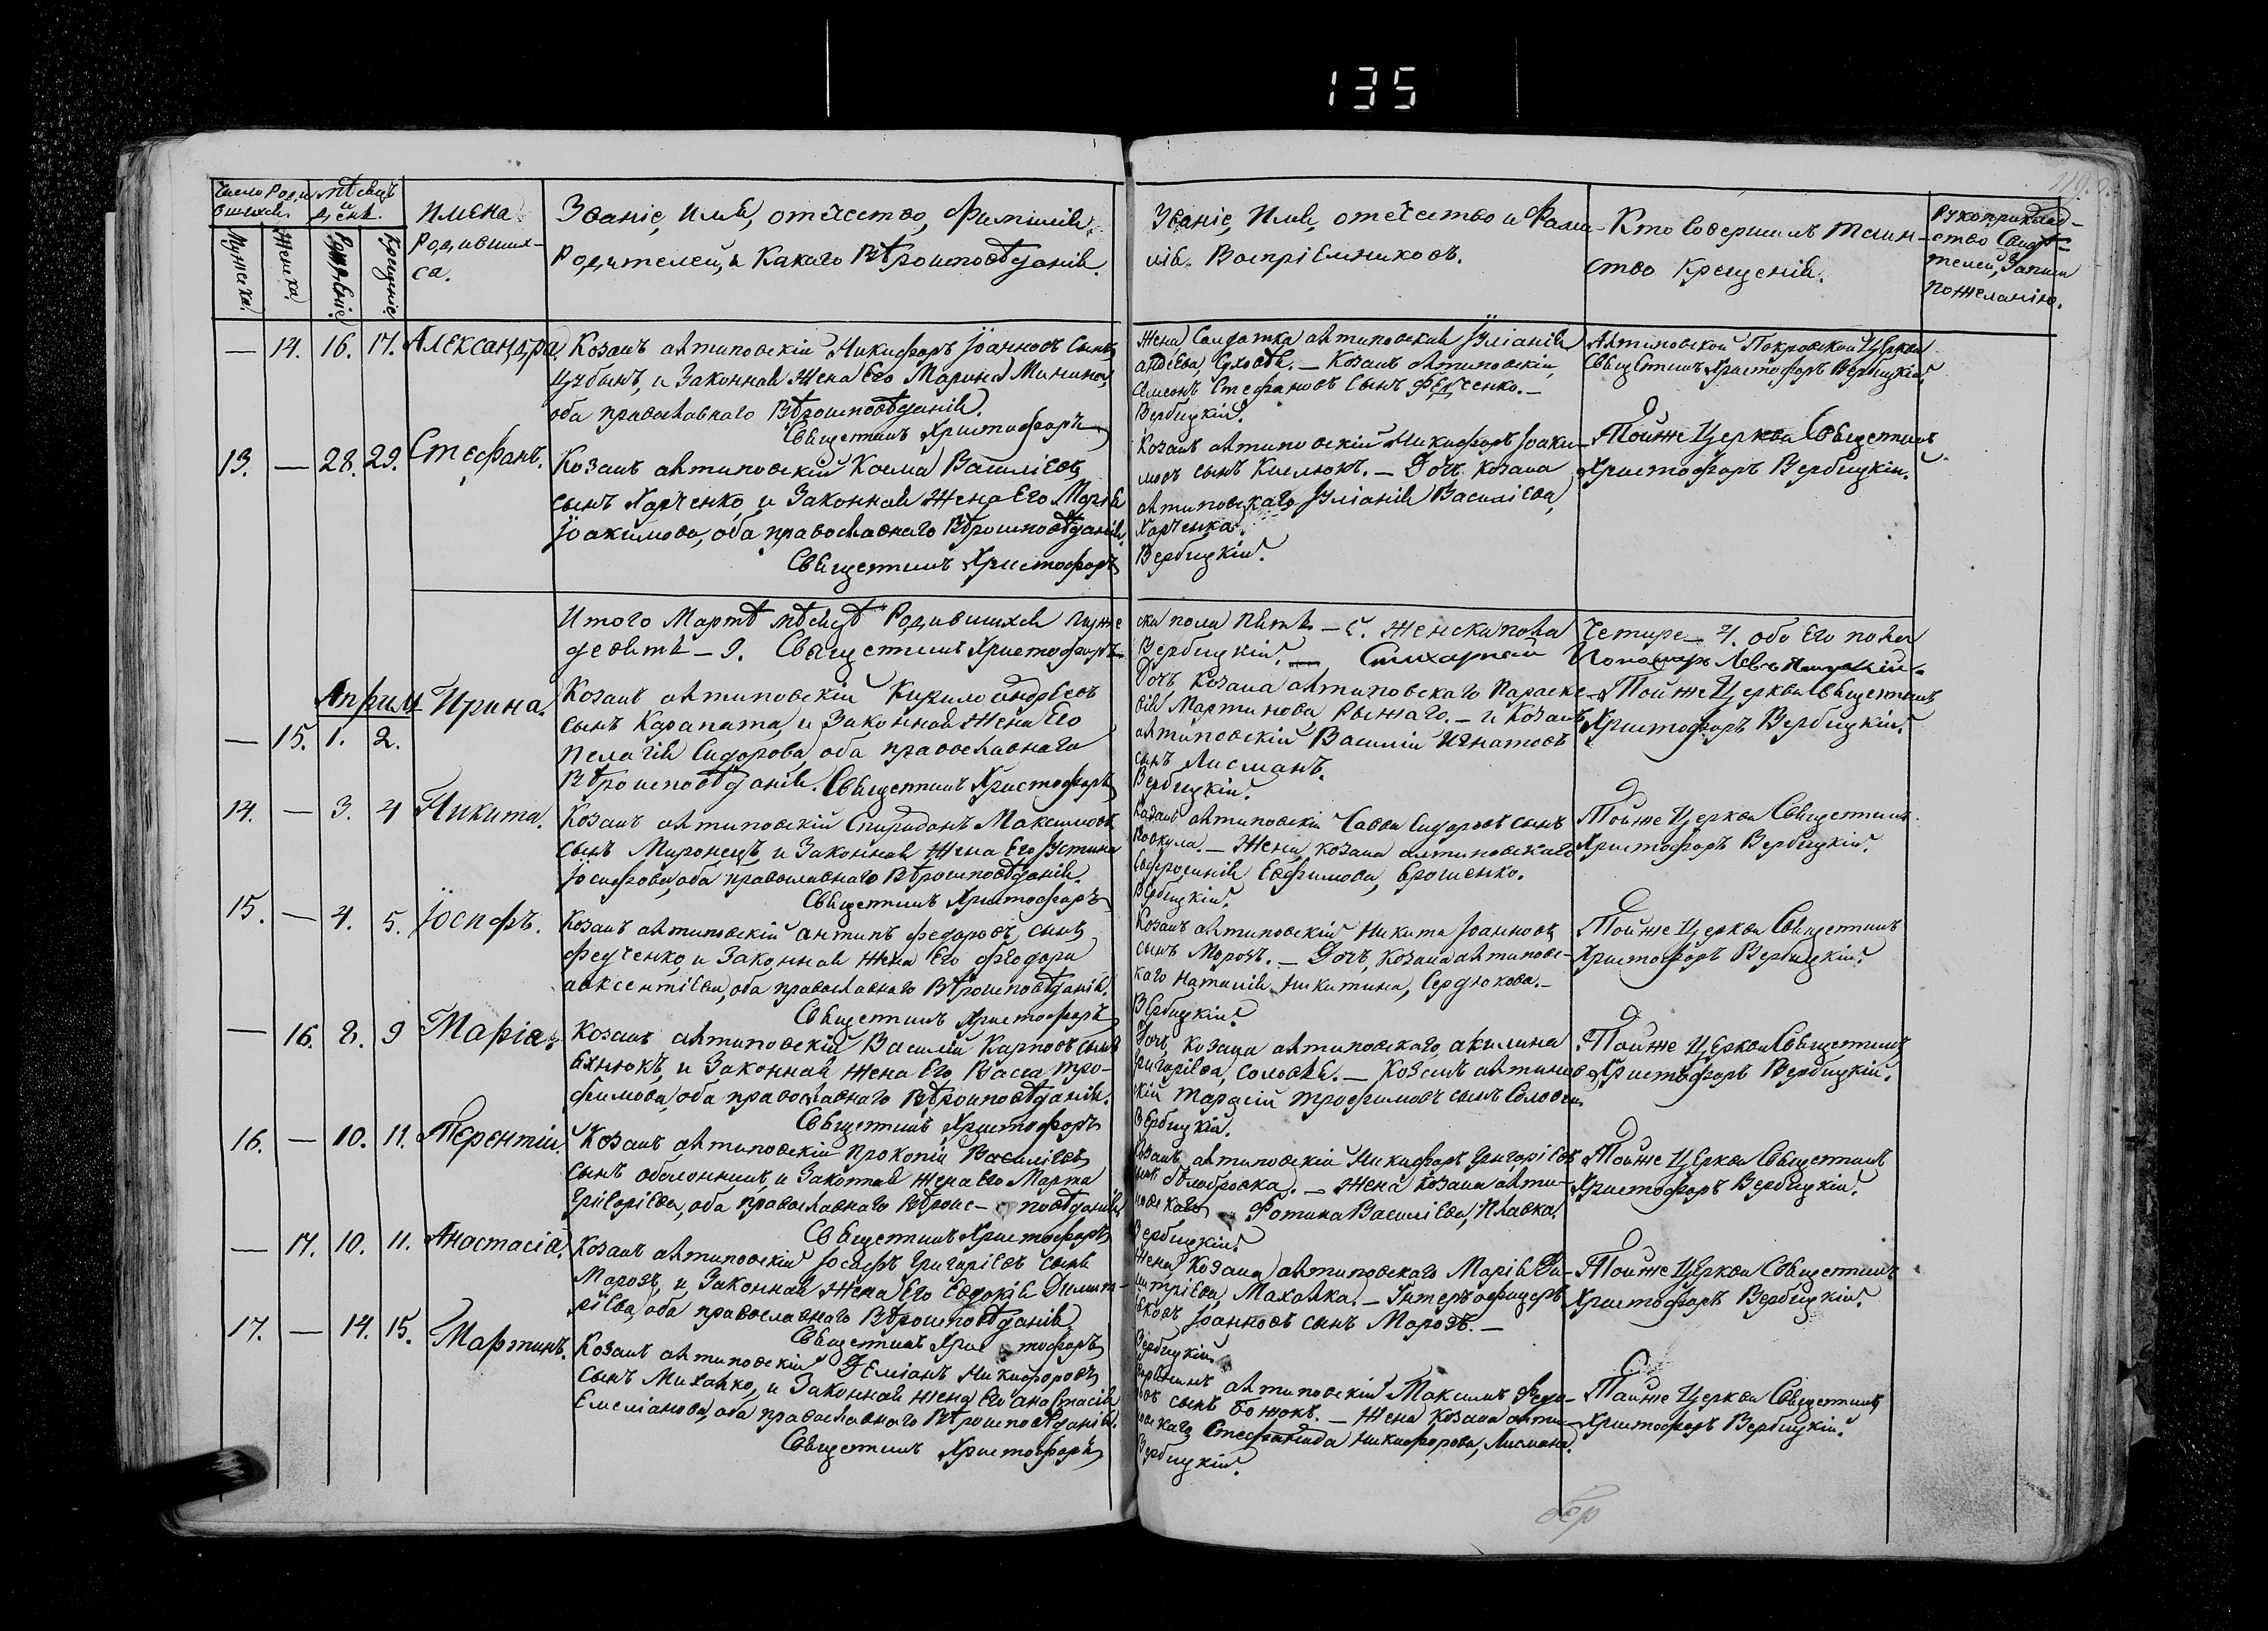 135
Число Роди
вшихся.
Мѣсяцъ
и
День.
Имена
Родивших-
ся.
Званіе, Имя, отечество, Фамилія,
Родителей, и Какаго Вѣроисповѣданія.
Званіе, Имя, отечество и Фами-
лія Воспріемниковъ.
Кто Совершилъ Таин-
ство Крещенія.
Рукоприклад-
ство Свидѣ-
телей, Записи
по желанію.
Мужеска.
Женска.
Рожденіе.
Крещеніе.
— 14. 16. 17. Александра.
Козакъ антиповскій Никифоръ Іоанновъ Сынъ
Цубынъ, и Законная Жена Его Марина Минина,
оба православнаго Вѣроисповѣданія.
Священникъ Христофоръ
Жена Солдатка антиповская Іуліанія
Козакъ антиповскій,
Стефановъ Сынъ Федченко. —
Вербицкій.
Антиповской Покровской Церкви
Священникъ Христофоръ Вербицкій.
13. — 28. 29. Стефанъ.
Козакъ антиповскій Косма Василіевъ
сынъ Харченко, и Законная Жена Его Марія
Іоакимова, оба православнаго Вѣроисповѣданія.
Священникъ Христофоръ
Козакъ антиповскій Никифоръ Іоаки-
мовъ сынъ Кислюкъ. — Дочь козака
антиповскаго, Іуліанія Василіева,
Харченка.
Вербицкій.
Тойже Церкви Священникъ
Христофоръ Вербицкій.
Итого Мартѣ мѣсяцѣ Родившихся муже
девять — 9. Священникъ Христофоръ
ска пола пять — 5. Женска пола
Вербицкій. Стихарный
Четире — 4. обо Его пола
Пономарь Левъ
Апрѣль
— 15. 1. 2. Ирина.
Козакъ антиповскій Кирило андреевъ
сынъ Карапата, и Законная Жена Его
Пелагія Сидорова, оба православнаго
Вѣроисповѣданія. Священникъ Христофоръ
Дочь Козака антиповскаго Параске-
вія Мартинова, Рыжаго. — и Козакъ
антиповскій Василій Игнатовъ
сынъ Лисманъ.
Вербицкій.
Тойже Церкви Священникъ
Христофоръ Вербицкій.
14. — 3. 4 Никита.
Козакъ антиповскій Спиридонъ Максимовъ
сынъ Миронецъ, и Законная Жена Его Устина
Іосифова, оба православнаго Вѣроисповѣданія.
Священникъ Христофоръ
Козакъ антиповскій Савва Сидоровъ сынъ
— Жена козака антиповскаго
Евфросинія Евфимова, Ерошенко.
Вербицкій.
Тойже Церкви Священникъ
Христофоръ Вербицкій.
15. — 4. 5. Іосифъ.
Козакъ антиповскій антипъ Федоровъ, сынъ
Федченко, и Законная Жена Его Феодора
авксентіева, оба православнаго Вѣроисповѣданія.
Священникъ Христофоръ
Козакъ антиповскій Никита Іоанновъ
сынъ Морозъ. — Дочь, Козака антиповс-
каго Наталія Никитина, Сердюкова. —
Вербицкій.
Тойже Церкви Священникъ
Христофоръ Вербицкій.
— 16. 8. 9 Марія.
Козакъ антиповскій Василій Карповъ сынъ
и Законная жена Его Васса Тро-
фимова, оба православнаго Вѣроисповѣданія.
Священникъ Христофоръ
Дочь, Козака антиповскаго, акилина
Григоріева, Соловья. — Козакъ антиповс
кій Тарасій Трофимовъ сынъ Соловей.
Вербицкій.
Тойже Церкви Священникъ
Христофоръ Вербицкій.
16. — 10. 11. Терентій.
Козакъ антиповскій Прокопій Василіевъ
сынъ оболонникъ, и Законная Жена Его Марта
Григоріева, оба православнаго Вѣроис- повѣданія
Священникъ Христофоръ
Козакъ антиповскій Никифоръ Григоріевъ
сынъ Бѣлобровка. — Жена козака анти-
повскаго Фотина Василіева, Плавка.
Вербицкій.
Тойже Церкви Священникъ
Христофоръ Вербицкій.
— 17. 10. 11. Анастасія.
Козакъ антиповскій Іосифъ Григоріевъ сынъ
Морозъ, и Законная Жена Его Евдокія Димит-
ріева, оба православнаго Вѣроисповѣданія.
Священникъ Христофоръ
Жена Козака антиповскаго Марія Ди-
митріева, Михалка. — Унтеръофицеръ
Яковъ Іоанновъ сынъ Морозъ. —
Вербицкій.
Тойже Церкви Священникъ
Христофоръ Вербицкій.
17. — 14. 15. Мартинъ.
Козакъ антиповскій Деміанъ Никифоровъ
Сынъ Михалко, и Законная жена Его анастасія
Емеліанова, оба православнаго Вѣроисповѣданія.
Священникъ Христофоръ
антиповскій Максимъ Федо-
ровъ сынъ Божокъ. — Жена козака анти-
повскаго Стефанида Никифорова, Лисмана.
Вербицкій.
Тойже Церкви Священникъ
Христофоръ Вербицкій.